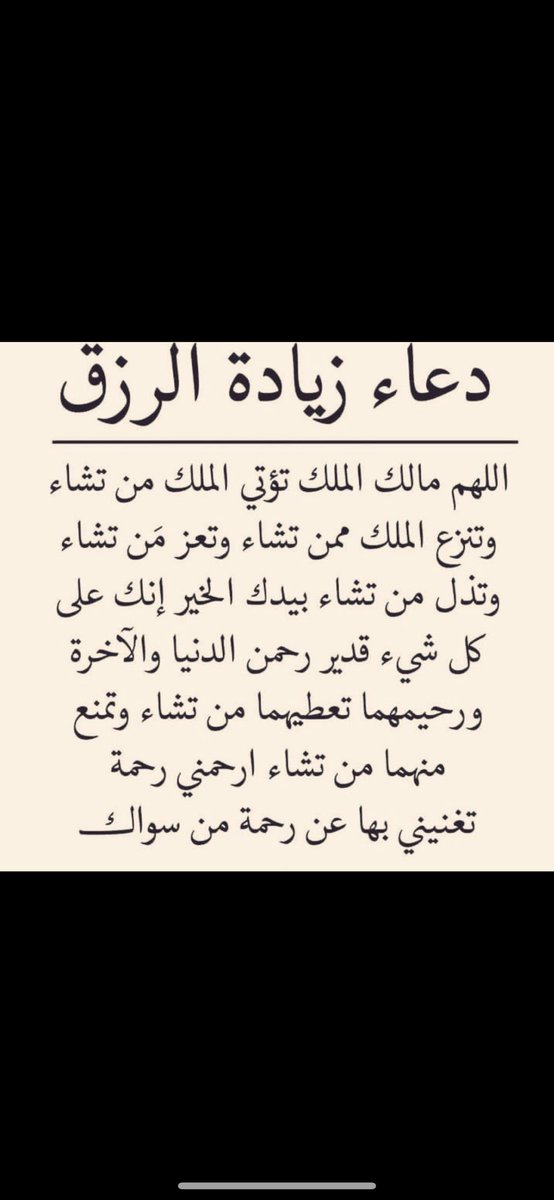 دعاء زيادة الرزق
اللهم مالك الملك تؤتي الملك من تشاء
وتنزع الملك ممن تشاء وتعز مَن تشاء
وتذل من تشاء بيدك الخير إنك على
كل شيء قدير رحمن الدنيا والآخرة
ورحيمهما تعطيهما من تشاء وتمنع
منهما من تشاء ارحمني رحمة
تغنيني بها عن رحمة من سواك